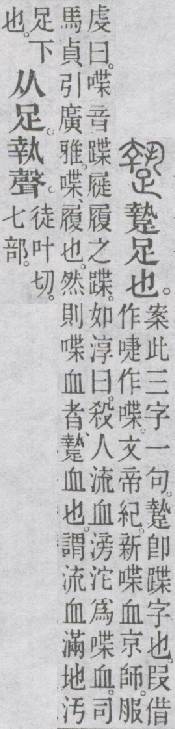 足也。
案此三字一句。卽蹀字也。叚借
作啑作喋。文帝紀。新喋血京師。服
虔曰。喋音蹀屣履之蹀。如淳曰。殺人流血滂沱爲喋血。司
馬貞引廣雅。喋、履也。然則喋血者、血也。謂流血滿地汚
足下
也。
从足。執聲。
徒叶切。
七部。